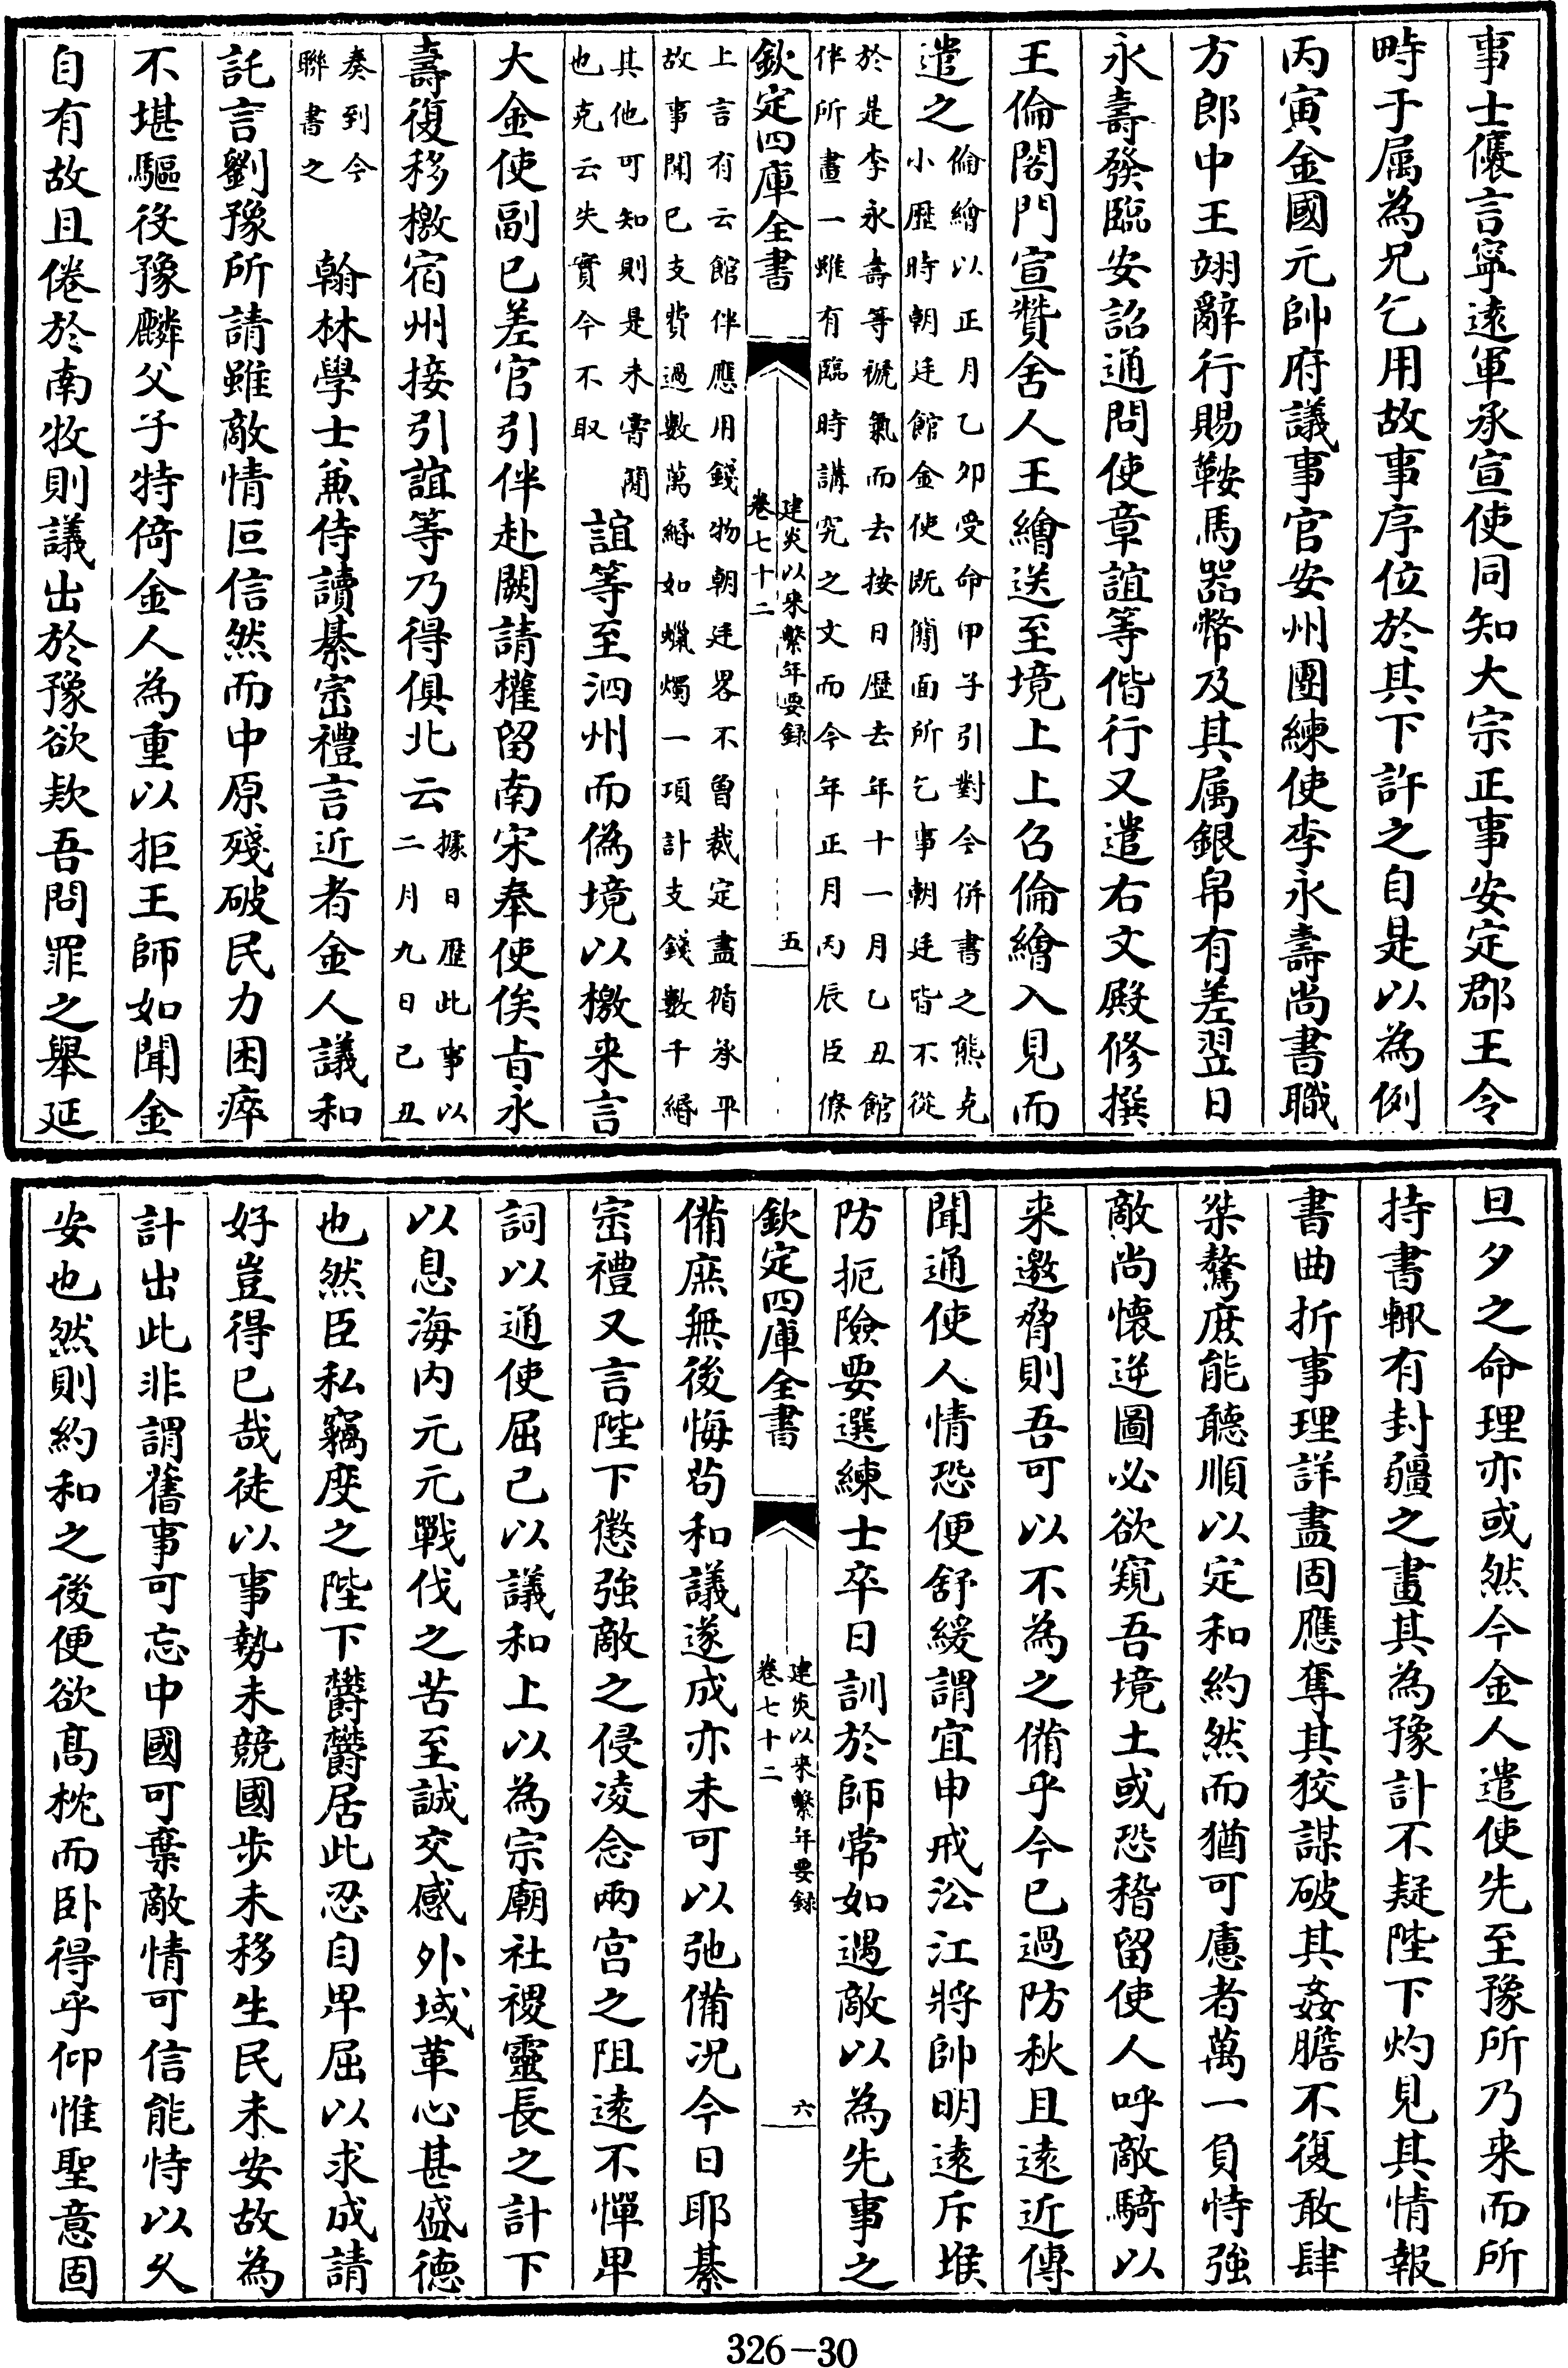 事士㒟言寧逺軍承宣使同知大宗正事安定郡王令
畤于属為兄乞用故事序位於其下許之自是以為例
丙寅金國元帥府議事官安州團練使李永壽尚書職
方郎中王翊辭行賜鞍馬器幣及其属銀帛有差翌日
永壽發臨安詔通問使章誼等偕行又遣右文殿修撰
王倫閤門宣贊舍人王繪送至境上上召倫繪入見而
遣之倫繪以正月乙夘受命甲子引對今併書之熊克
小厯時朝廷館金使既簡面所乞事朝廷皆不從
於是李永壽等褫氣而去按日厯去年十一月乙丑館
伴所畫一雖有臨時講究之文而今年正月丙辰臣僚
欽定四庫全書 建炎以來繫年要録 卷七十二 五
上言有云館伴應用錢物朝廷畧不曾裁定盡循承平
故事聞已支費過數萬緡如蠟燭一項計支錢數千緡
其他可知則是未嘗簡
也克云失實今不取
誼等至泗州而偽境以檄来言
大金使副已差官引伴赴闕請權留南宋奉使俟㫖永
壽復移檄宿州接引誼等乃得俱北云據日厯此事以
二月九日己丑
奏到今
聯書之
翰林學士兼侍讀綦崈禮言近者金人議和
託言劉豫所請雖敵情叵信然而中原殘破民力困瘁
不堪驅役豫麟父子特倚金人為重以拒王師如聞金
自有故且倦於南牧則議出於豫欲欵吾問罪之舉延
旦夕之命理亦或然今金人遣使先至豫所乃来而所
持書輙有封疆之畫其為豫計不疑陛下灼見其情報
書曲折事理詳盡固應奪其狡謀破其姦膽不復敢肆
桀驁庶能聽順以定和約然而猶可慮者萬一負恃強
敵尚懷逆圖必欲窺吾境土或恐稽留使人呼敵騎以
来邀脅則吾可以不為之備乎今已過防秋且逺近傳
聞通使人情恐便舒緩謂宜申戒沿江將帥明逺斥堠
防扼險要選練士卒日訓於師常如遇敵以為先事之
欽定四庫全書 建炎以來繫年要録 卷七十二 六
備庶無後悔茍和議遂成亦未可以弛備况今日耶綦
崈禮又言陛下懲強敵之侵凌念兩宫之阻逺不憚卑
詞以通使屈己以議和上以為宗廟社稷靈長之計下
以息海内元元戰伐之苦至誠交感外域革心甚盛德
也然臣私竊度之陛下欝欝居此忍自卑屈以求成請
好豈得已哉徒以事勢未競國步未移生民未安故為
計出此非謂舊事可忘中國可棄敵情可信能恃以乆
安也然則約和之後便欲髙枕而卧得乎仰惟聖意固
326-30